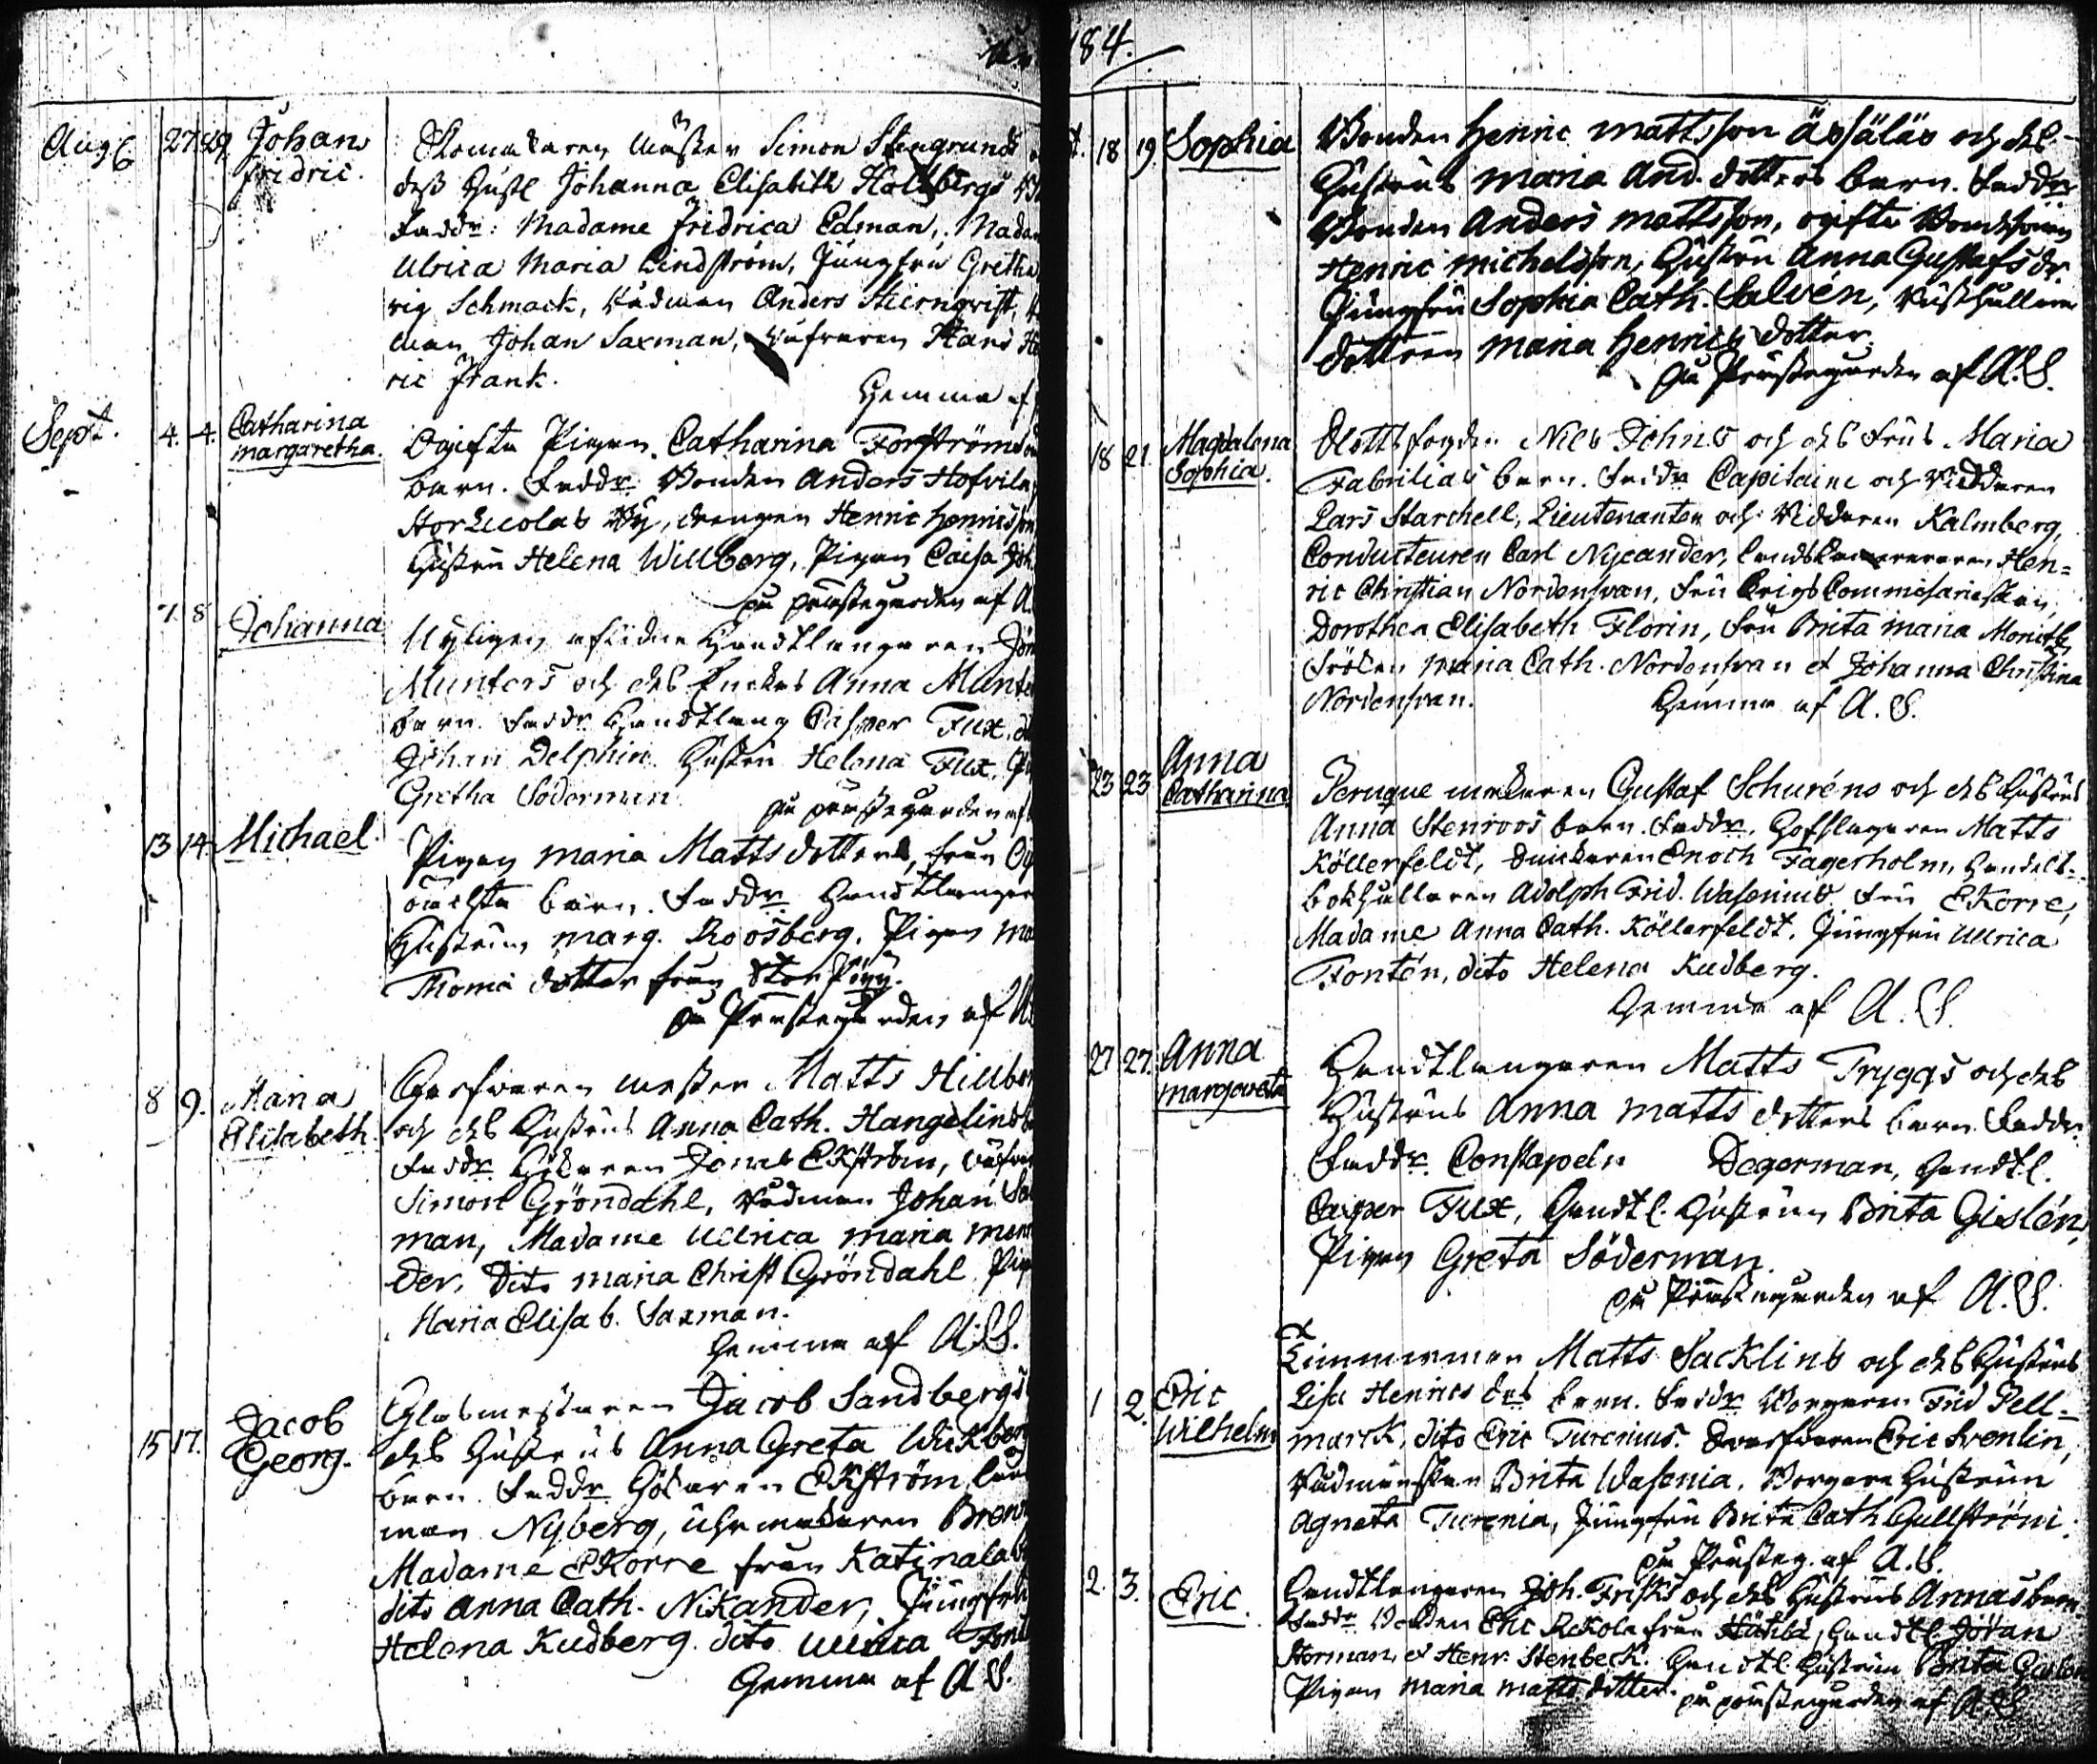 184.
Aug. 27 29 Johan Skomakaren Mäster Simon Stengrunds
Fridric. dess Hust. Johanna Elisabeth Hollbergs
Faddr: Madame Fridrica Edman, Madam
Ulrica Maria Lindström, Jungfru Gretha
Schmack, Rådman Anders Stiernqvist,
man Johan Saxman, Hans
ric Frank.
Hemma af
Sept. 4. 4. Catharina Ogifta Pigan Catharina Forström
Margaretha. barn. Faddr Bonden Anders Hofvila
by, drengen Henric Henricsson
Hustru Helena Willberg, Pigan Caisa
på prästegården af A.
7 8 Johanna Nyligen aflidne Handtlangaren
Munters och des Enckas Anna Munte
barn. Faddr Handtlang Casper Fux,
Johan Delphin Hustru Helena Fux,
Gretha Söderman
på prästegården af
13 14 Michael. Pigan Maria Matts dotters, från
oächta barn. Faddr Handtlanger
Hustrun Marg. Roosberg. Pigan
Thoma dotter från
på Prästegården af A
8 9. Maria Garfvaren Mester Matts Hillber
Elisabeth och des Hustrus Anna Cath. Hangelins
Faddr Hökaren Jonas Ekström,
Simon Gröndahl, Rådman Johan
man, Madame Ullrica Maria
der, Dito Maria Christ Gröndahl Pig
Maria Elisab. Saxman.
Hemma af A:S.
15 17. Jacob Glasmestaren Jacob Sandbergs
Georg. des Hustrus Anna Greta Wickber
barn. Faddr Hökaren Ekström,
man Nyberg, Uhrmakaren
Madame Ekorre från Katinala
dito Anna Cath. Nikander, Jungfru
Helena Kudberg dito Ullrica
Hemma af A S.
18 19 Sophia Bonden Henric Mattsson och des
Hustrus Maria And. dotters barn. Faddr
Bonden Anders Mattsson, ogifte Bondsonen
Henric Michelsson, Hustru Anna Gustafs dr
Jungfru Sophia Cath. Salvén,
dottren Maria Henrics dotter.
på Prästegården af A.S.
18 21. Magdalena Slottsfogden Nils Johns och des Frus Maria
Sophia. Fabrilias barn. Faddr Capitaine och Riddaren
Lars Starckell, Lieutenanten och Riddaren Kalmberg,
Conducteuren Carl Nycander, Landskamereraren Hen=
ric Christian Nordensvan, Fru Krigs Commissarieskan
Dorothea Elisabeth Florin, Fru Brita Maria
Fröken Maria Cath. Nordensvan et Johanna Christina
Nordensvan. Hemma af A.S.
23 23 Anna Peruque makaren Gustaf Schuréns och des Hustrus
Catharina Anna Stenroos barn. Faddr. Hofslagaren Matts
Köllerfeldt, Enoch Fagerholm, Handels-
bokhållaren Adolph Frid. Wasenius Fru Ekorre,
Madame Anna Cath. Köllerfeldt, Jungfru Ullrica
Fontén, dito Helena Kudberg.
Hemma af A.S.
27 27 Anna Handtlangaren Matts Tryggs och des
Margareta Hustrus Anna Matts dotters barn Faddr
Faddr. Constapeln Degerman, Handtl.
Casper Fux, Handtl. Hustrun Brita Gislén,
Pigan Greta Söderman.
på Prästegården af A.S.
1 2. Eric Timmerman Matts Sacklins och des Hustrus
Wilhelm Lisa Henrics drs barn. Faddr Borgaren Frid Pell=
marck, dito Eric Turenius. Svarfvaren Eric Svenlin,
Rådmanskan Brita Wasenia, Borgare Hustrun
Agneta Turenia, Jungfru Brita Cath Gullström.
på Prästeg. af A.S.
2. 3. Eric. Handtlangaren Joh. Frisks och des Hustrus Annas barn
Faddr Bonden Eric Rekola från Hätilä, Handtl Johan
Storman, et Henr. Stenbeck. Handtl. Hustrun Brita
Pigan Maria Matts dotter. på prästegården af A.S